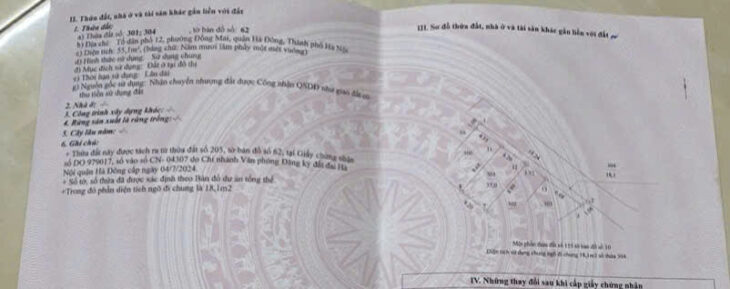 II. Thửa đất, nhà ở và tài sản khác gắn liền với đất
1. Thửa đất:
a) Thửa đất số: 301; 304 , tờ bản đồ số: 62
b) Địa chỉ: Tổ dân phố 12, phường Đồng Mai, quận Hà Đông, Thành phố Hà Nội
c) Diện tích: 55,1m², (bằng chữ: Năm mươi lăm phẩy một mét vuông)
d) Hình thức sử dụng: Sử dụng chung
đ) Mục đích sử dụng: Đất ở tại đô thị
e) Thời hạn sử dụng: Lâu dài
g) Nguồn gốc sử dụng: Nhận chuyển nhượng đất được Công nhận QSDĐ như giao đất có
thu tiền sử dụng đất
2. Nhà ở: -/-
3. Công trình xây dựng khác: -/-
4. Rừng sản xuất là rừng trồng: -/-
5. Cây lâu năm: -/-
6. Ghi chú:
+ Thửa đất này được tách ra từ thửa đất số 205, tờ bản đồ số 62, tại Giấy chứng nhận
số DO 979017, số vào sổ CN- 04307 do Chi nhánh Văn phòng Đăng ký đất đai Hà
Nội quận Hà Đông cấp ngày 04/7/2024.
+ Số tờ, số thửa đã được xác định theo Bản đồ dự án tổng thể
+Trong đó phần diện tích ngõ đi chung là 18,1m2
III. Sơ đồ thửa đất, nhà ở và tài sản khác gắn liền với đất
304
18,1
301
37,0
302
303
Một phần thửa đất số 115 tờ bản đồ số 10
Diện tích sử dụng chung ngõ đi chung 18,1m2 số thửa 304
IV. Những thay đổi sau khi cấp giấy chứng nhận